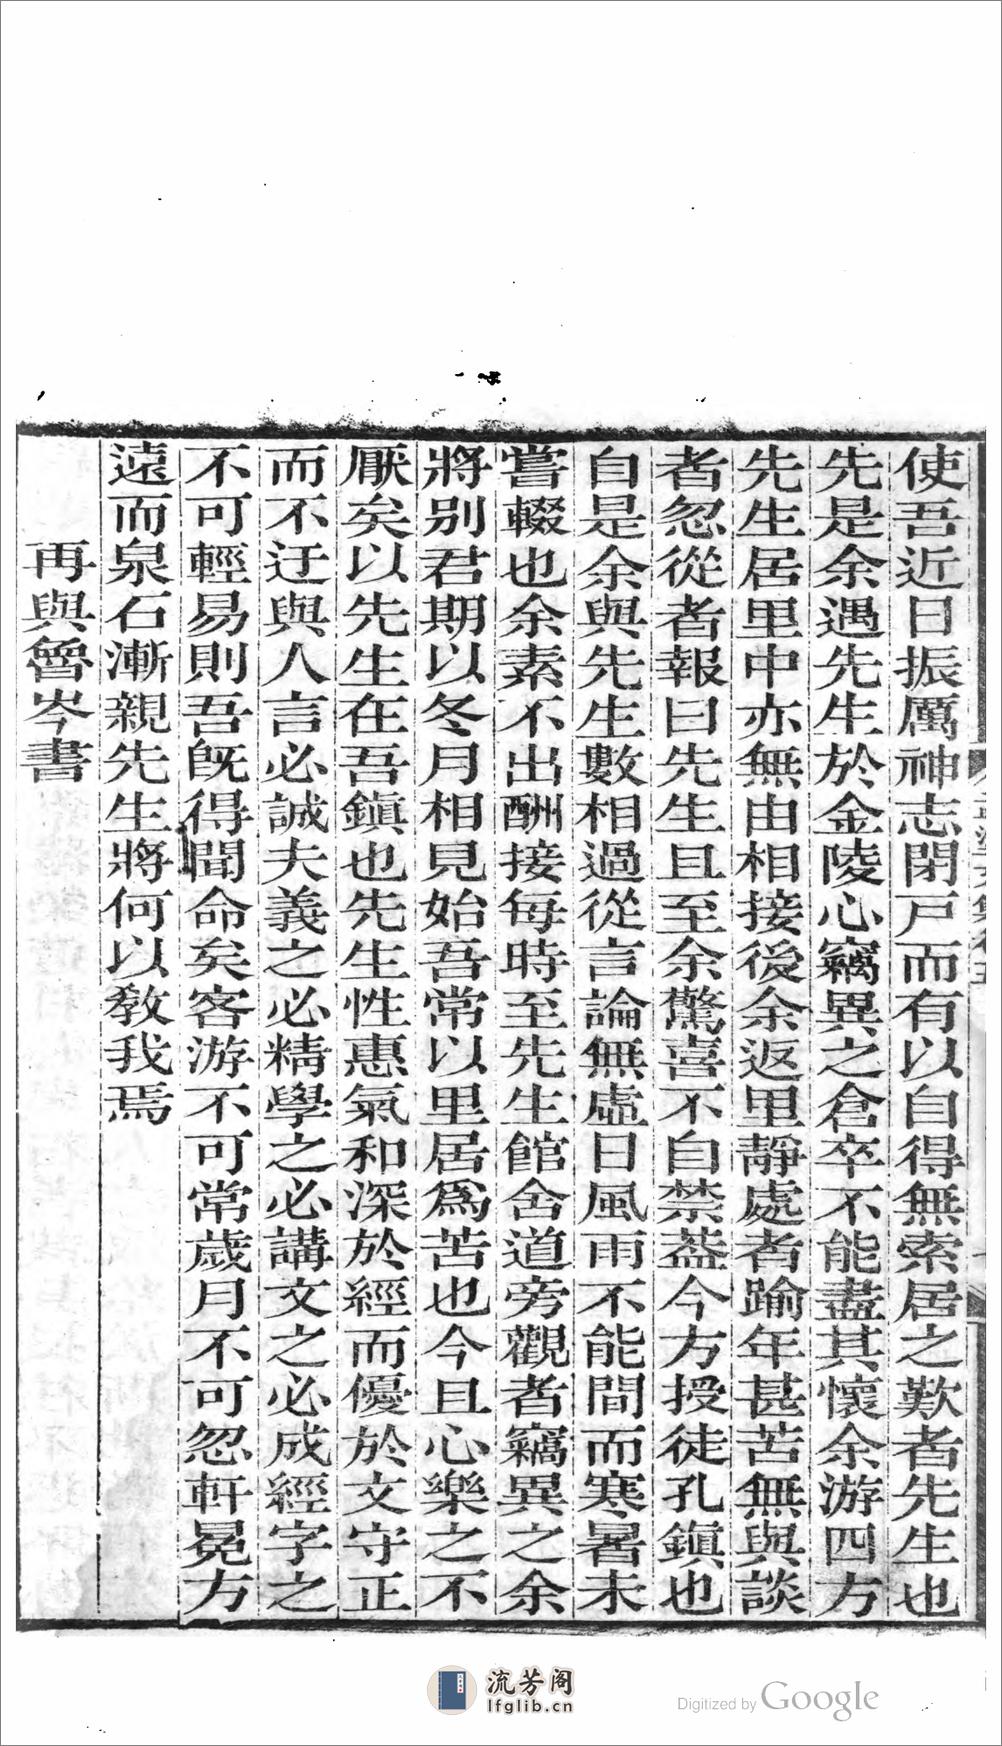 使吾近日振厲神志閉戸而有以自得無索居之歎者先生也
先是余遇先生於金陵心竊異之倉卒不能盡其懷余游四方
先生居里中亦無由相接後余返里靜處者踰年甚苦無與談
者忽從者報曰先生且至余驚喜不自禁葢今方授徒孔鎭也
自是余與先生數相過從言論無虛日風雨不能間而寒暑未
嘗輟也余素不出酬接每時至先生館舍道旁觀者竊異之余
將別君期以冬月相見始吾常以里居爲苦也今且心樂之不
厭矣以先生在吾鎭也先生性惠氣和深於經而優於文守正
而不迂與人言必誠夫義之必精學之必講文之必成經字之
不可輕易則吾旣得聞命矣客游不可常歲月不可忽軒冕方
遠而泉石漸親先生將何以敎我焉
再與魯岑書
流芳阁
lfglib.cn
Digitized by Google